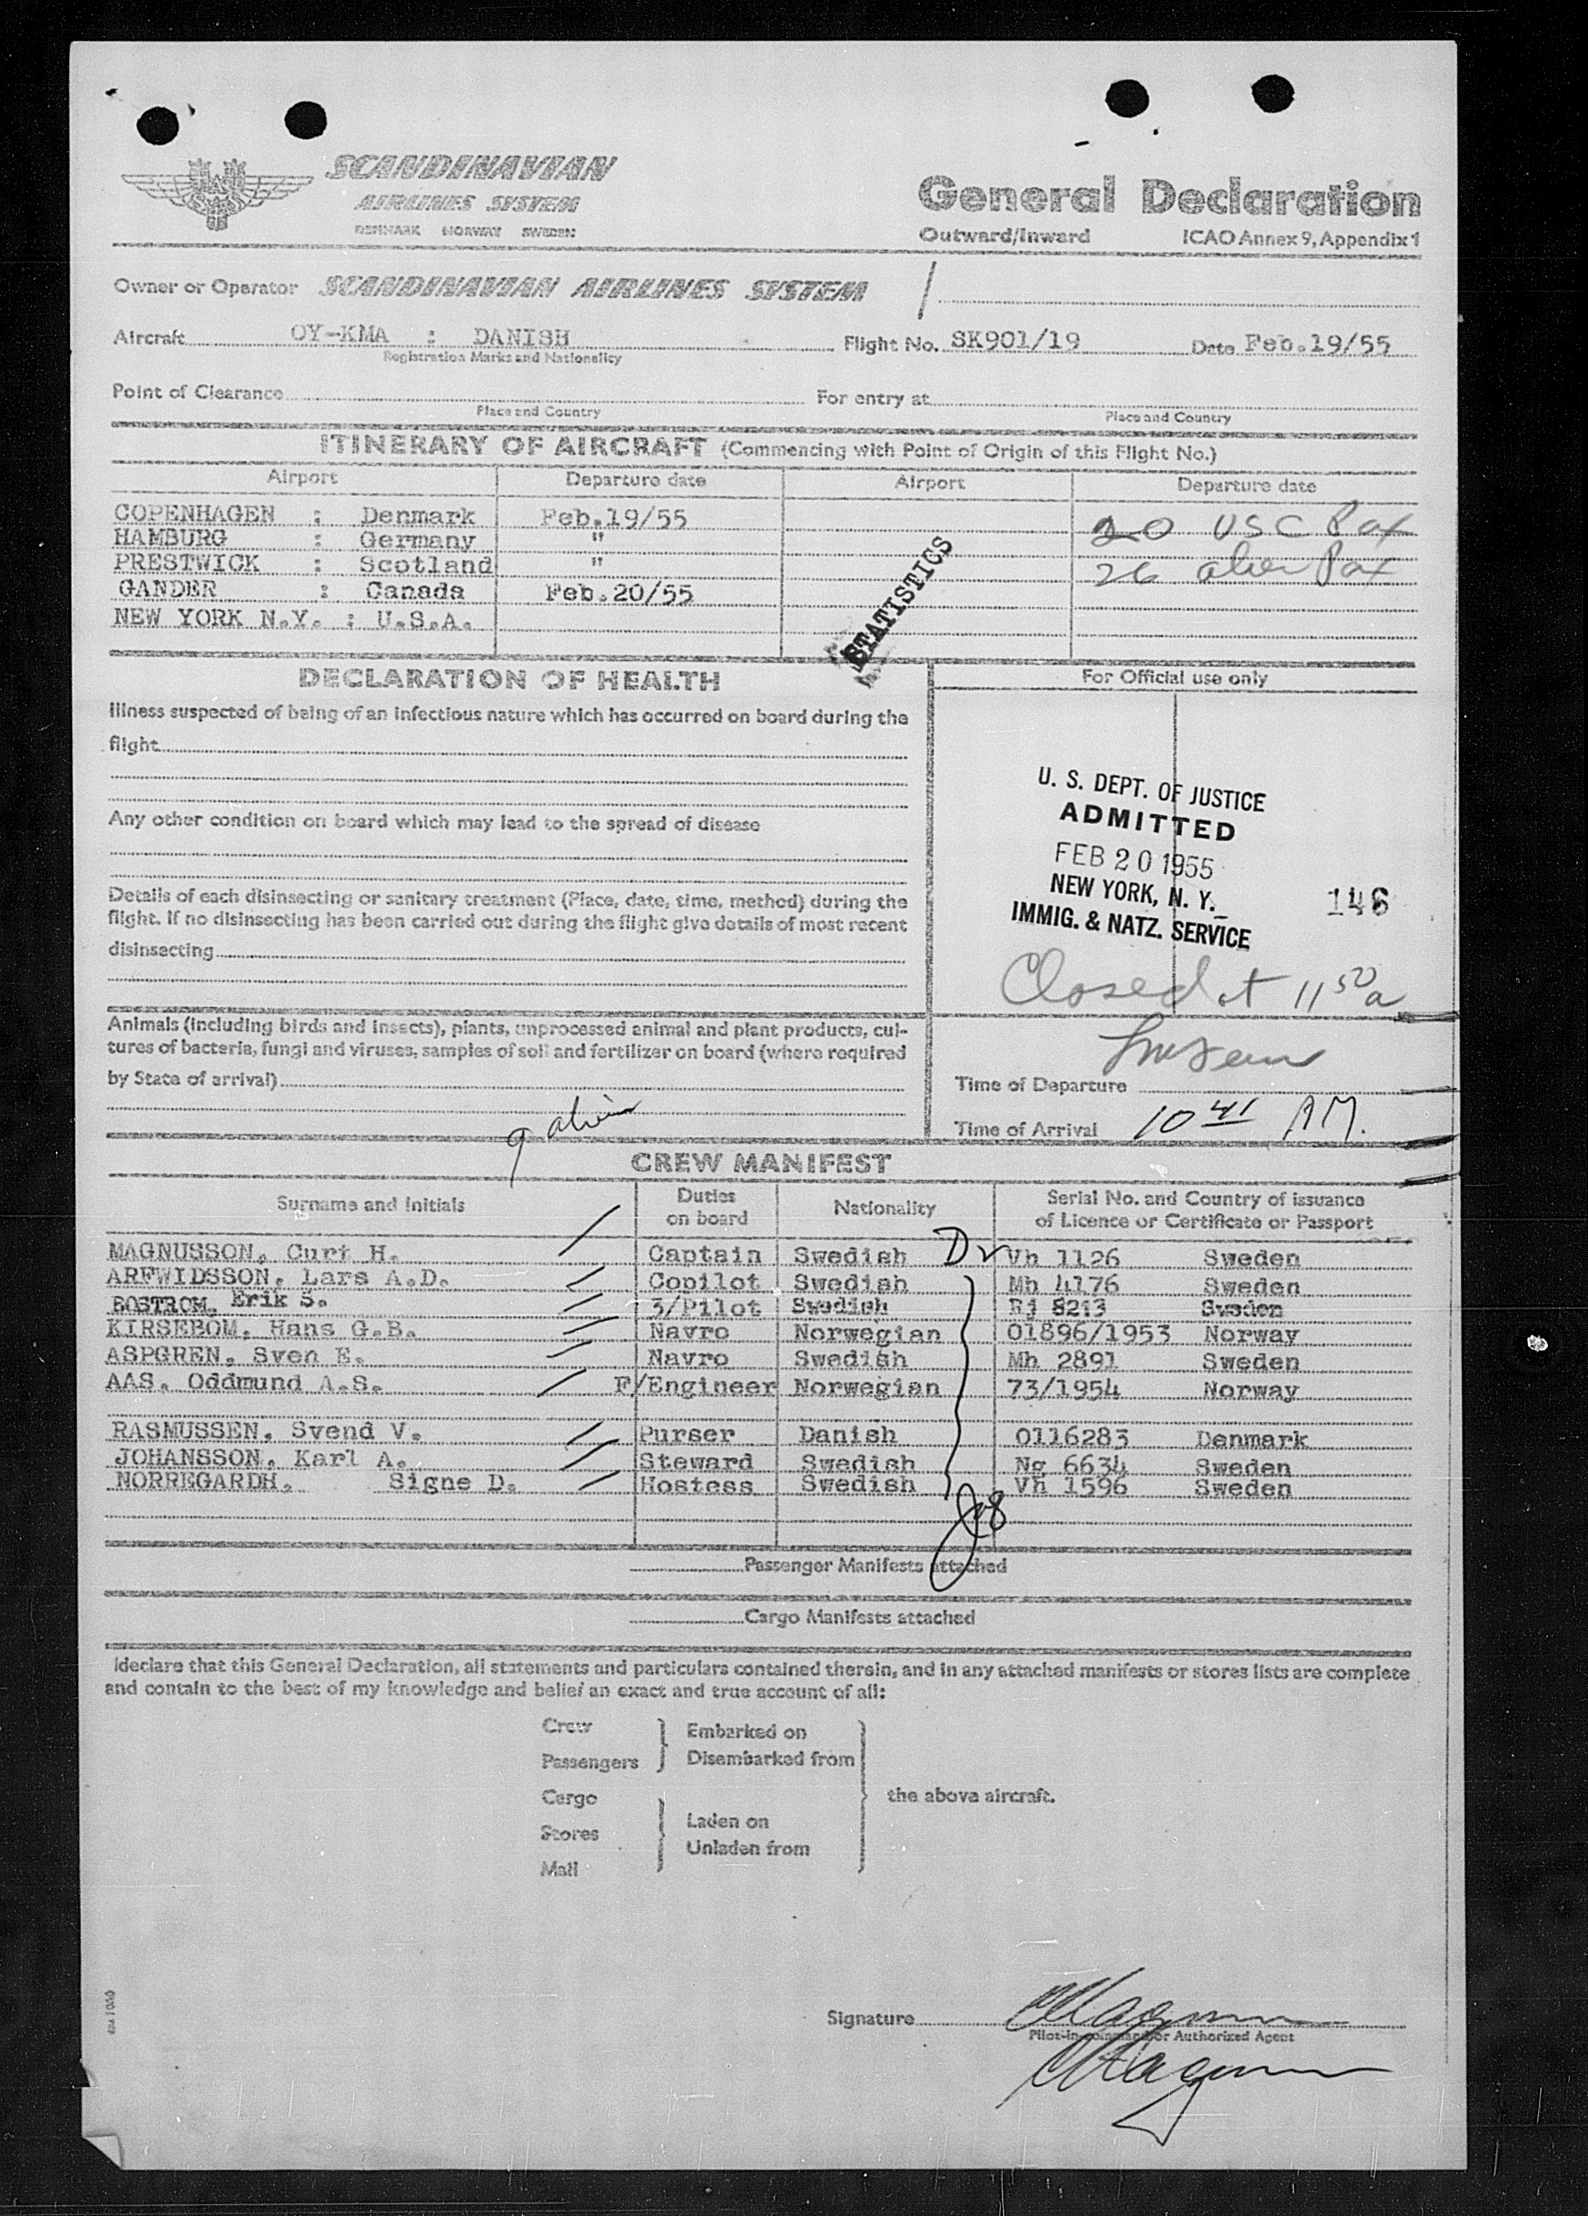 SCANDINAVIAN
AIRLINES SYSTEM
DENMARK NORWAY SWEDEN
General Declaration
Outward/Inward ICAO Annex 9, Appendix 1
Owner or Operator SCANDINAVIAN AIRLINES SYSTEM
Aircraft OY-KMA : DANISH Flight No. SK901/19 Date Feb.19/55
Registration Marks and Nationality
Point of Clearance For entry at
Place and Country Place and Country
ITINERARY OF AIRCRAFT (Commencing with Point of Origin of this Flight No.)
Airport Departure date Airport Departure date
COPENHAGEN : Denmark Feb.19/55 20 USC Pax
HAMBURG : Germany "
PRESTWICK : Scotland " 26 alien Pax
GANDER : Canada Feb.20/55
NEW YORK N.Y. : U.S.A.
STATISTICS
DECLARATION OF HEALTH
For Official use only
Illness suspected of being of an infectious nature which has occurred on board during the
flight
Any other condition on board which may lead to the spread of disease
Details of each disinsecting or sanitary treatment (Place, date, time, method) during the
flight. If no disinsecting has been carried out during the flight give details of most recent
disinsecting
U. S. DEPT. OF JUSTICE
ADMITTED
FEB 20 1955
NEW YORK, N. Y. 146
IMMIG. & NATZ. SERVICE
Closed at 11 50 a
Animals (including birds and insects), plants, unprocessed animal and plant products, cul-
tures of bacteria, fungi and viruses, samples of soil and fertilizer on board (where required
by State of arrival)
Time of Departure
Time of Arrival 10 41 AM.
9 alien
CREW MANIFEST
Surname and Initials Duties on board Nationality Serial No. and Country of issuance of Licence or Certificate or Passport
MAGNUSSON, Curt H. Captain Swedish Vh 1126 Sweden
ARFWIDSSON, Lars A.D. Copilot Swedish Mh 4176 Sweden
BOSTROM, Erik S. 3/Pilot Swedish Rj 8213 Sweden
KIRSEBOM, Hans G.B. Navro Norwegian 01896/1953 Norway
ASPGREN, Sven E. Navro Swedish Mh 2891 Sweden
AAS, Oddmund A.S. F/Engineer Norwegian 73/1954 Norway
RASMUSSEN, Svend V. Purser Danish 0116283 Denmark
JOHANSSON, Karl A. Steward Swedish Ng 6634 Sweden
NORREGARDH, Signe D. Hostess Swedish Vh 1596 Sweden
Passenger Manifests attached
Cargo Manifests attached
I declare that this General Declaration, all statements and particulars contained therein, and in any attached manifests or stores lists are complete
and contain to the best of my knowledge and belief an exact and true account of all:
Crew
Passengers
Embarked on
Disembarked from
Cargo
Stores
Mail
Laden on
Unladen from
the above aircraft.
Signature
Pilot-in-command or Authorized Agent